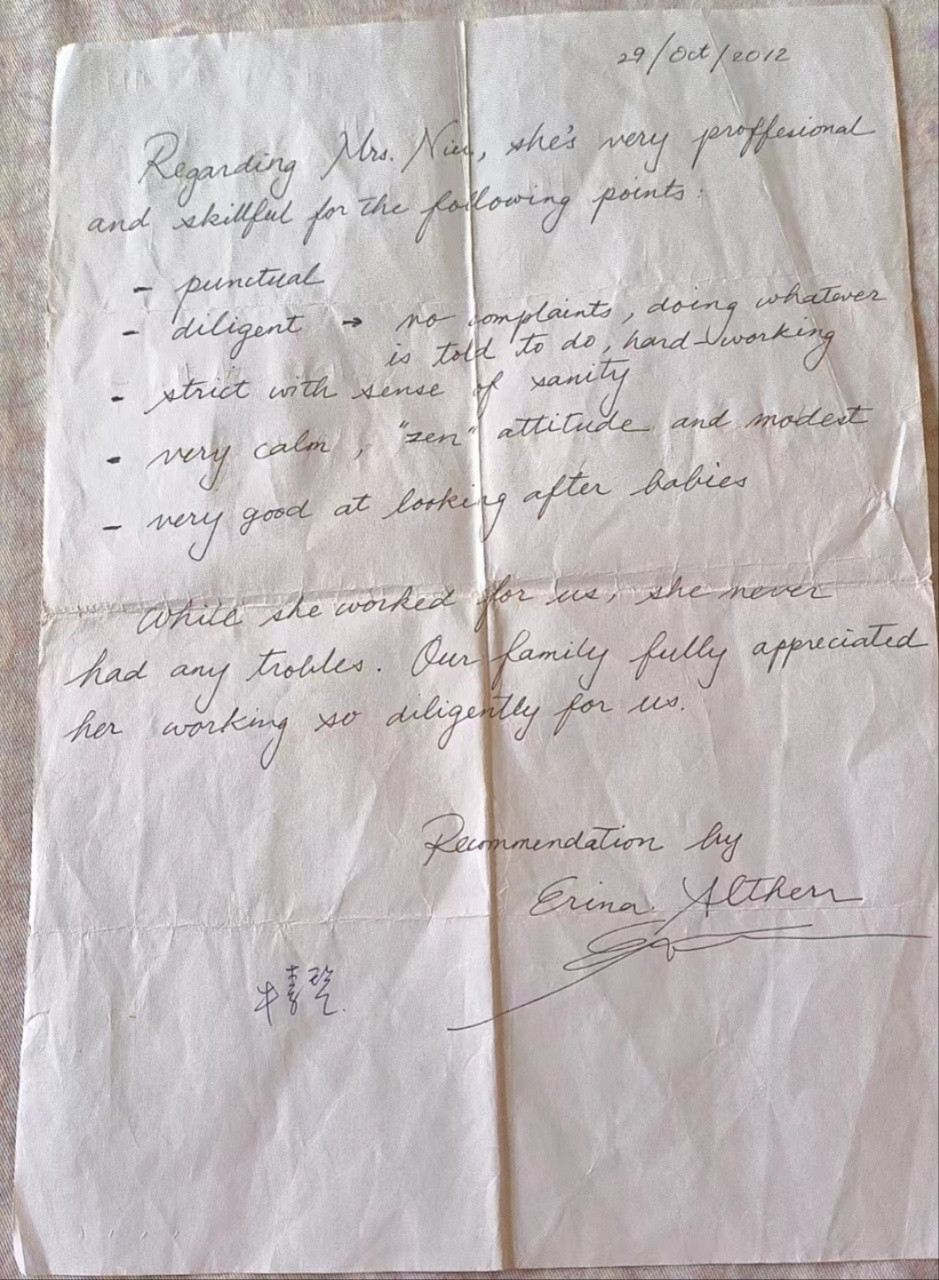 29/Oct/2012
Regarding Mrs. Niu, she's very proffesional
and skillful for the following points:
- punctual
- diligent → no complaints, doing whatever
is told to do, hard-working
- strict with sense of sanity
- very calm, "zen" attitude and modest
- very good at looking after babies
While she worked for us, she never
had any trobles. Our family fully appreciated
her working so diligently for us.
Recommendation by
Erina Altherr
牛